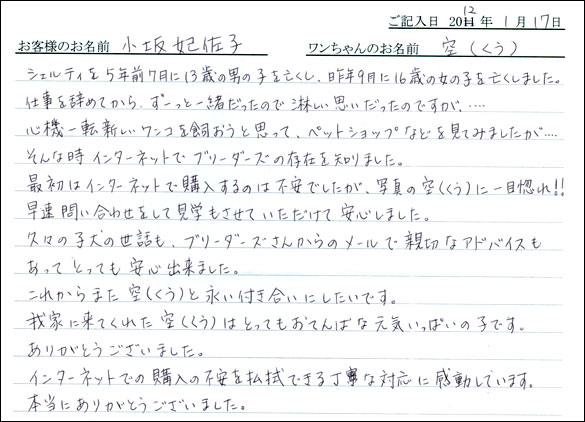 ご記入日 2012年 1月 17日
お客様のお名前 小坂妃佐子 ワンちゃんのお名前 空(くう)
シェルティを5年前7月に13歳の男の子を亡くし、昨年9月に16歳の女の子を亡くしました。
仕事を辞めてから、ずーっと一緒だったので淋しい思いだったのですが、‥‥
心機一転新しいワンコを飼おうと思って、ペットショップなどを見てみましたが‥‥
そんな時インターネットでブリーダーズの存在を知りました。
最初はインターネットで購入するのは不安でしたが、写真の空(くう)に一目惚れ!!
早速問い合わせをして見学もさせていただけて安心しました。
久々の子犬の世話も、ブリーダーズさんからのメールで親切なアドバイスも
あってとっても安心出来ました。
これからまた空(くう)と永い付き合いにしたいです。
我家に来てくれた空(くう)はとってもおてんばな元気いっぱいの子です。
ありがとうございました。
インターネットでの購入の不安を払拭できる丁寧な対応に感動しています。
本当にありがとうございました。